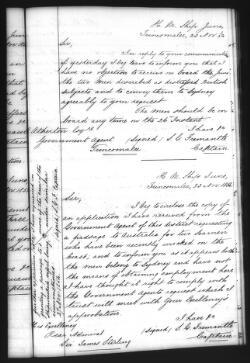 H. M. Ship Juno,
Trincomalee, 22 Nov 56
Sir,
In reply to your communication
of yesterday I beg leave to inform you that I
have no objection to receive on board the Juno
the two men described as distressed British
subjects and to convey them to Sydney
agreeably to your request
The men should be on
board any time on the 26 Instant
I have &c
Government Agent (signed) S. G. Fremantle
Trincomalee Captain
H. M. Ship Juno,
Trincomalee, 22 Nov 1856
Sir,
I beg to enclose the copy of
an application I have received from the
Government Agent of this district requesting
a passage to Australia for two
who have been recently wrecked on the
coast, and to inform you as it appears both
the men belong to Sydney and have not
the means of obtaining employment here
I have thought it right to comply with
the Government Agents request which I
trust will meet with your Excellency's
approbation
I have &c
His Excellency (signed) S. G. Fremantle
Rear Admiral Captain
Sir James Sterling